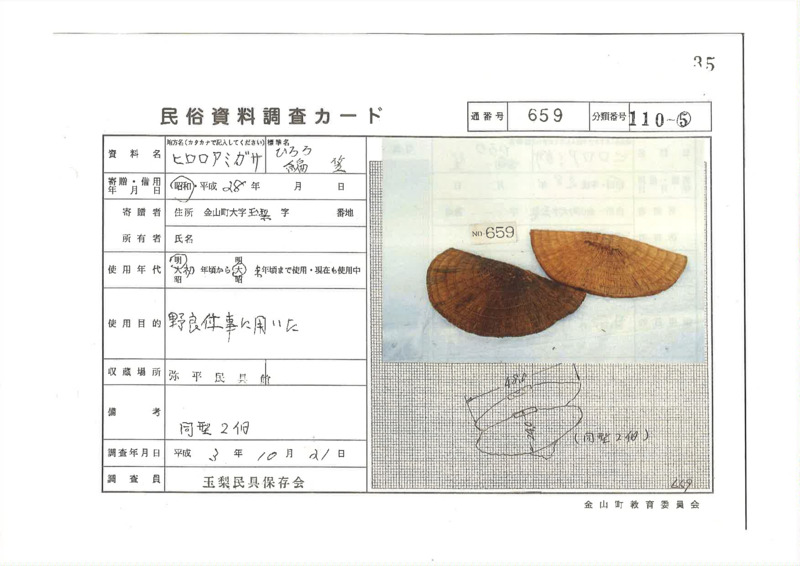 35
民俗資料調査カード
通番号 659 分類番号 110-⑤
資料名 地方名(カタカナで記入してください) ヒロロアミガサ 標準名 ひろろ編笠
寄贈・借用年月日 昭和・平成 28年 月 日
寄贈者 住所 金山町大字玉梨字 番地
所有者 氏名
使用年代 明大昭 初年頃から 明大昭 末年頃まで使用・現在も使用中
使用目的 野良仕事に用いた
収蔵場所 弥平民具館
備考 同型2個
調査年月日 平成 3年 10月 21日
調査員 玉梨民具保存会
NO.659
48.5
(同型2個)
659
金山町教育委員会